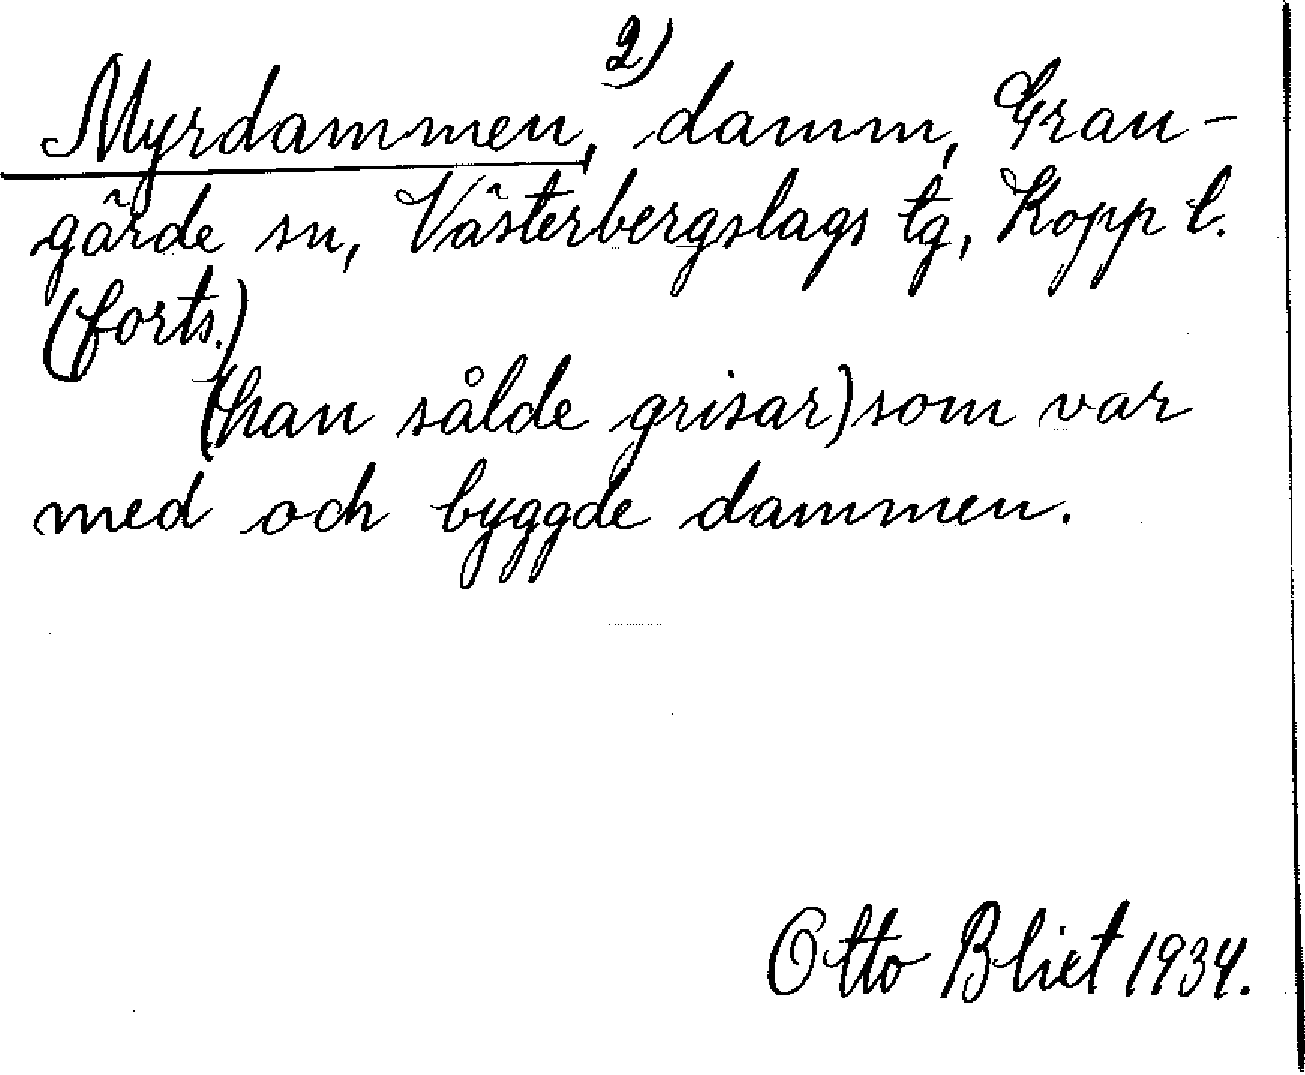 2)
Myrdammen, damm, Gran-
gärde sn, Västerbergslags tg, Kopp l.
(forts.)
(han sålde grisar) som var
med och byggde dammen.
Otto Blixt 1934.